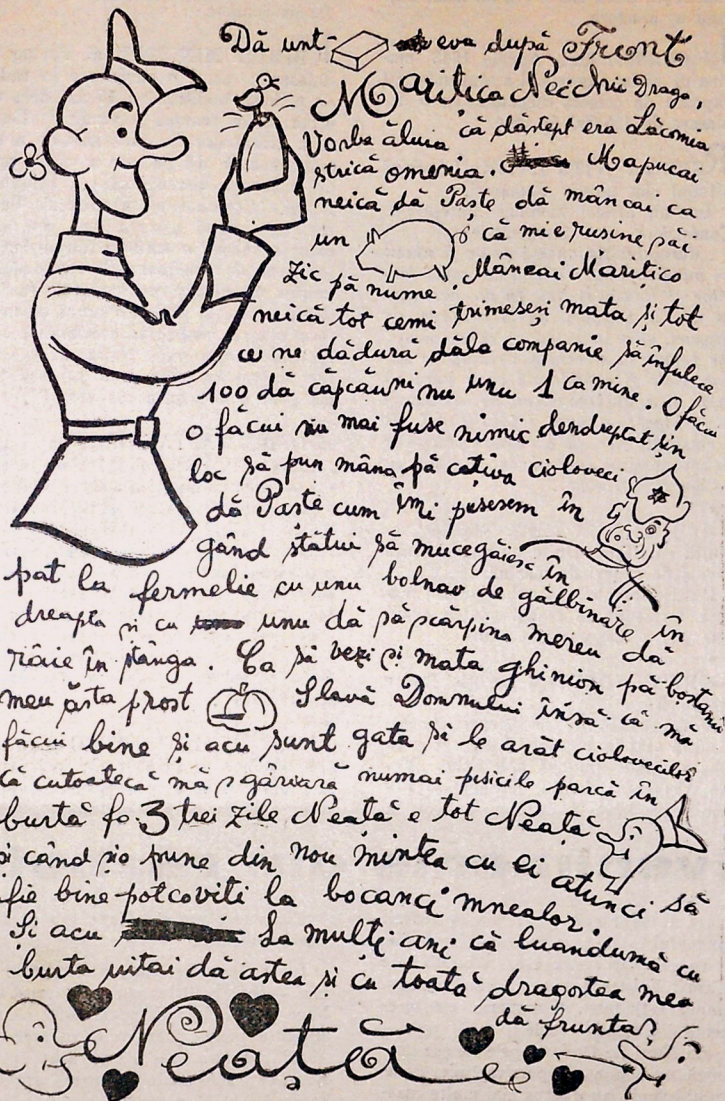 Dă unt- eva după Front
Maritica Neichii Draga,
Vorba ăluia că dăștept era Lăcomia
strică omenia. Mapucai
neică dă Paște dă mâncai ca
un că mi e rușine săi
zic pă nume. Mâncai Maritico
neică tot cemi trimeseși mata și tot
ce ne dădură dăla companie să înfulece
100 dă căpcăuni nu unu 1 ca mine. O făcui
o făcui nu mai fuse nimic dendreptat și în
loc să pun mâna pă cațiva cioloveci
dă Paște cum îmi pusesem în
gând stătui să mucegăiesc în
pat la fermelie cu unu bolnav de gălbinare în
dreapta și cu unu dă să scărpina mereu dă
râie în stânga. Ca să vezi și mata ghinion pă bostanu
meu ăsta prost Slavă Domnului însă că mă
făcui bine și acu sunt gata să le arăt ciolovecilor
că cutoatecă mă sgârară numai pisicile parcă în
burtă fo 3 trei zile Neață e tot Neață
și când sio pune din nou mintea cu ei atunci să
fie bine potcoviti la bocanci mnealor.
Și acu La mulți ani că luandumă cu
burta uitai dă astea și cu toată dragostea mea
dă frunta?
Neață